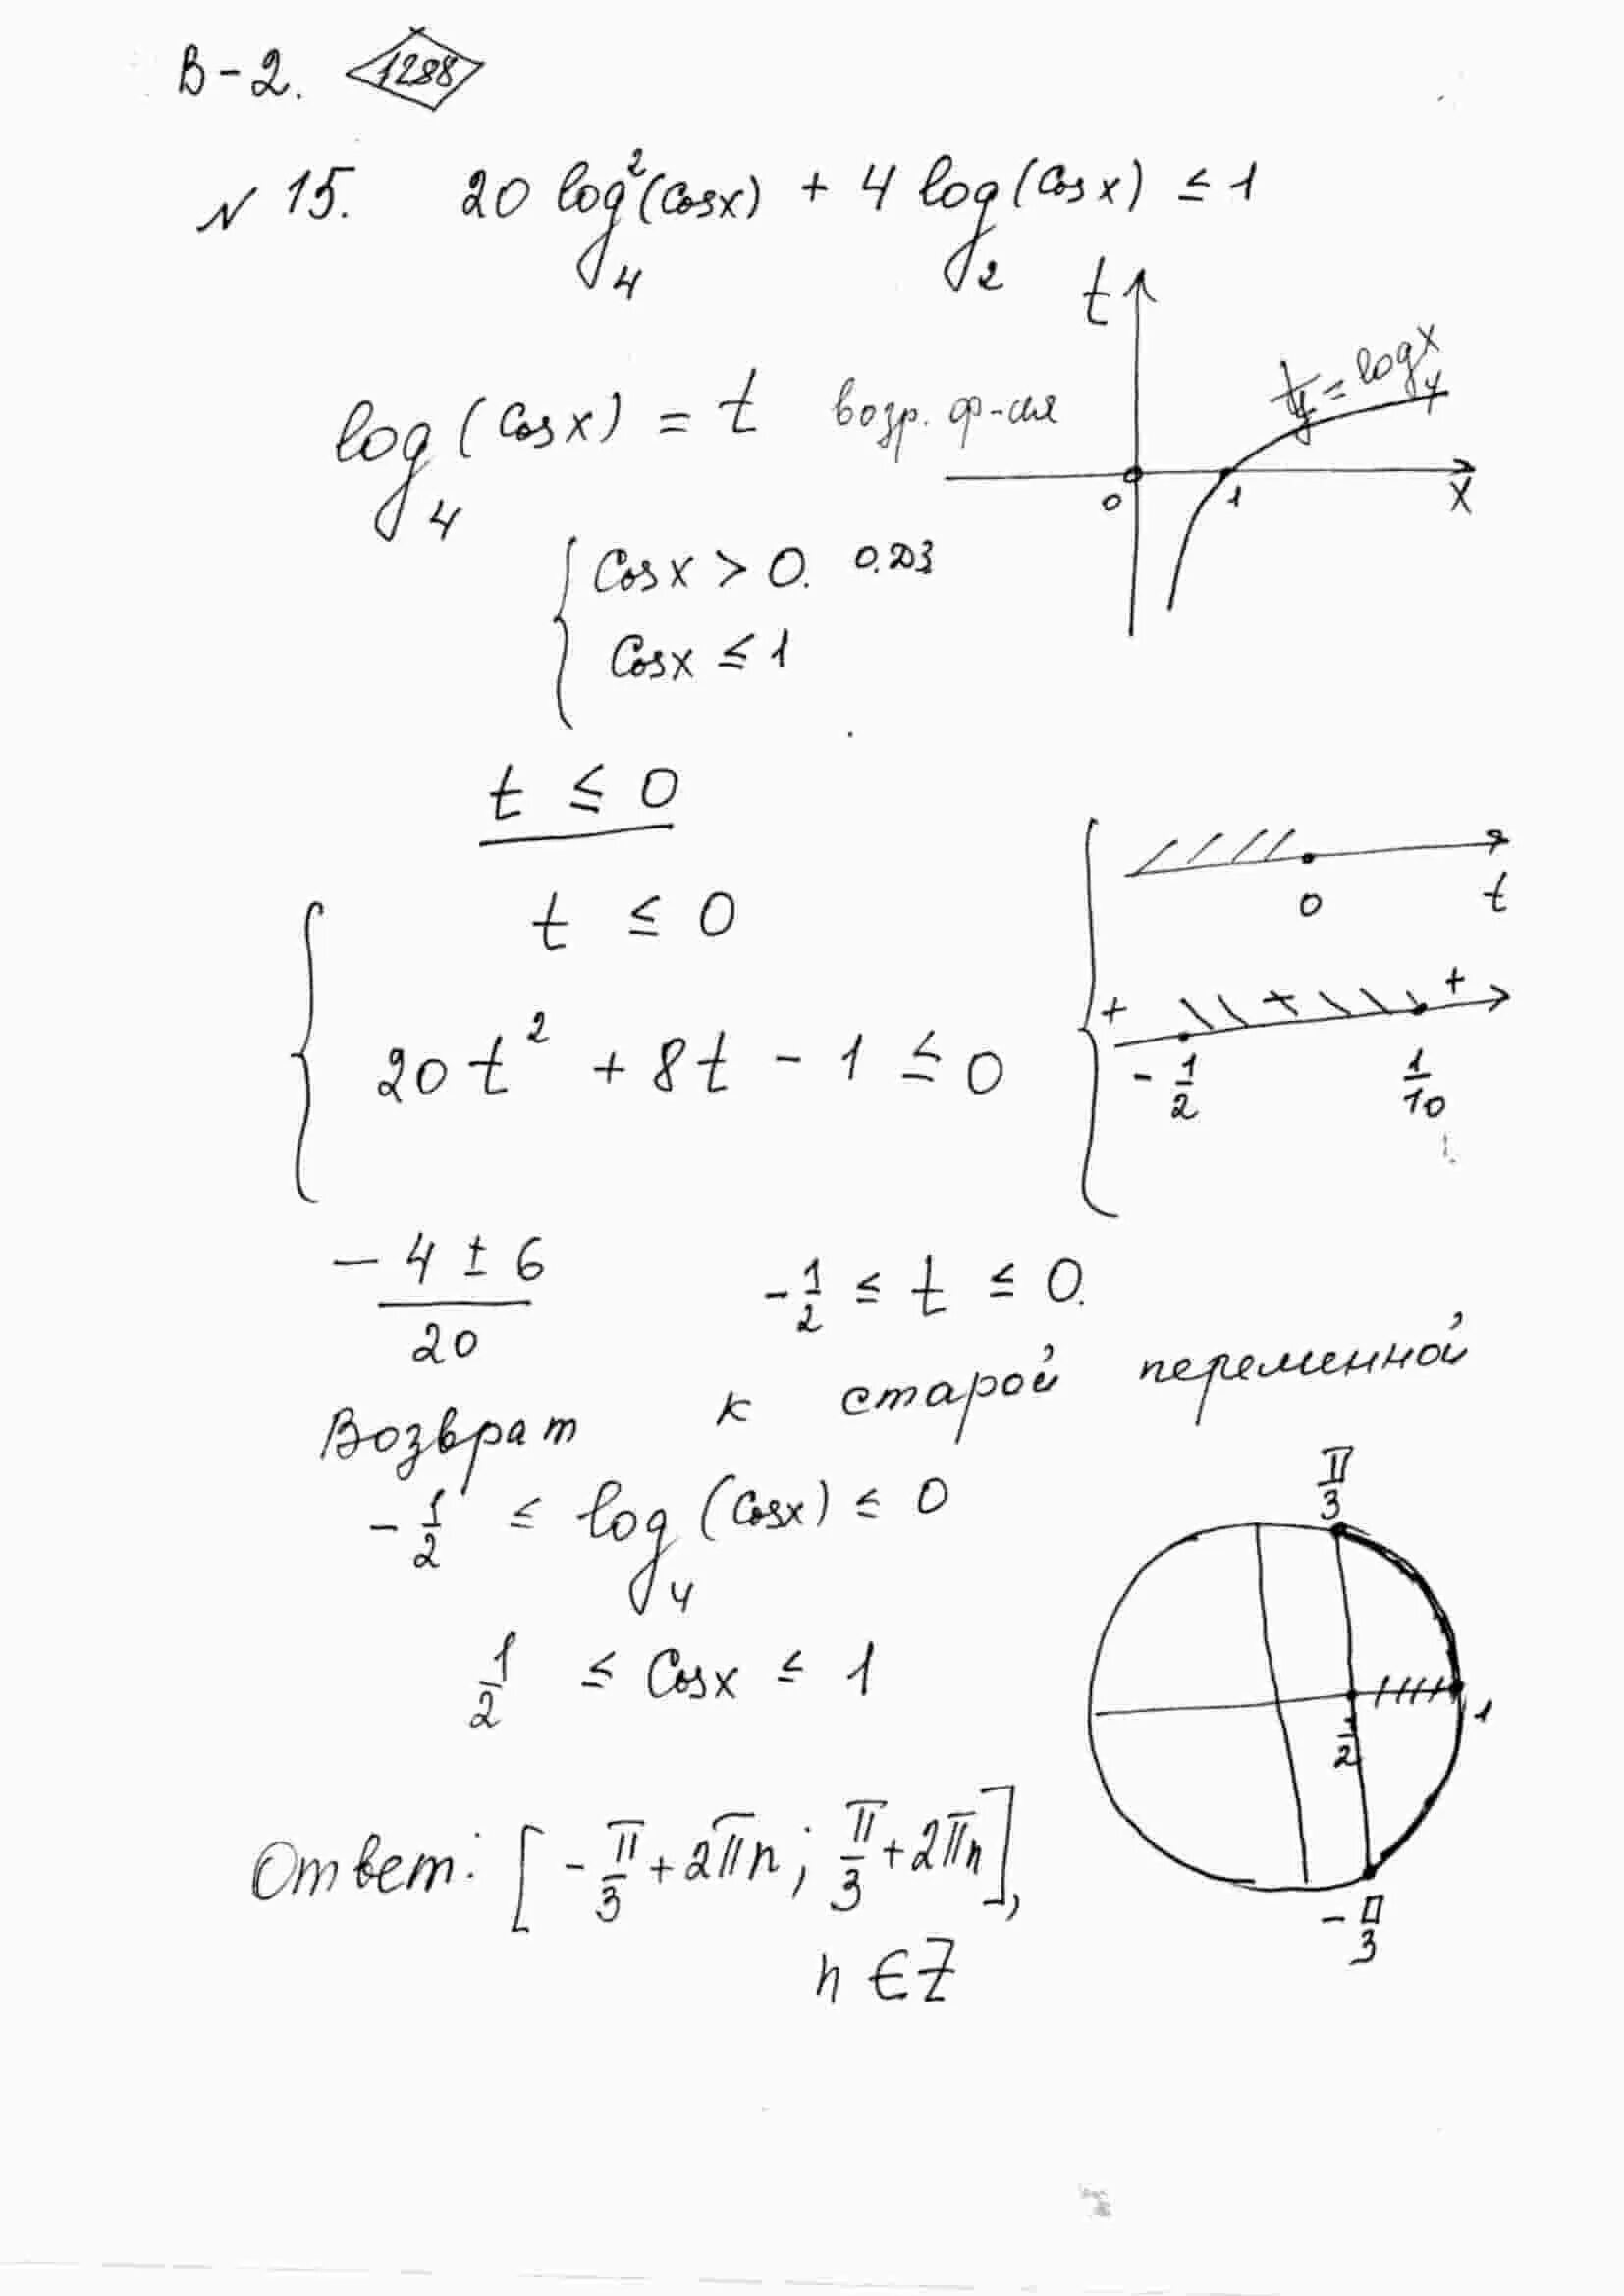 В-2. 1288
N 15. 20 log₄²(cosx) + 4 log₂(cosx) ≤ 1
t
y = log₄x
log₄(cosx) = t возр. ф-ия
0 1 x
cosx > 0. О.ДЗ
cosx ≤ 1
t ≤ 0
t ≤ 0
0 t
20t² + 8t - 1 ≤ 0
+ + +
-1/2 1/10
(-4 ± 6)/20 -1/2 ≤ t ≤ 0.
Возврат к старой переменной
-1/2 ≤ log₄(cosx) ≤ 0
π/3
1/2 ≤ cosx ≤ 1
1/2 1
Ответ: [-π/3 + 2πn; π/3 + 2πn],
-π/3
n ∈ Z